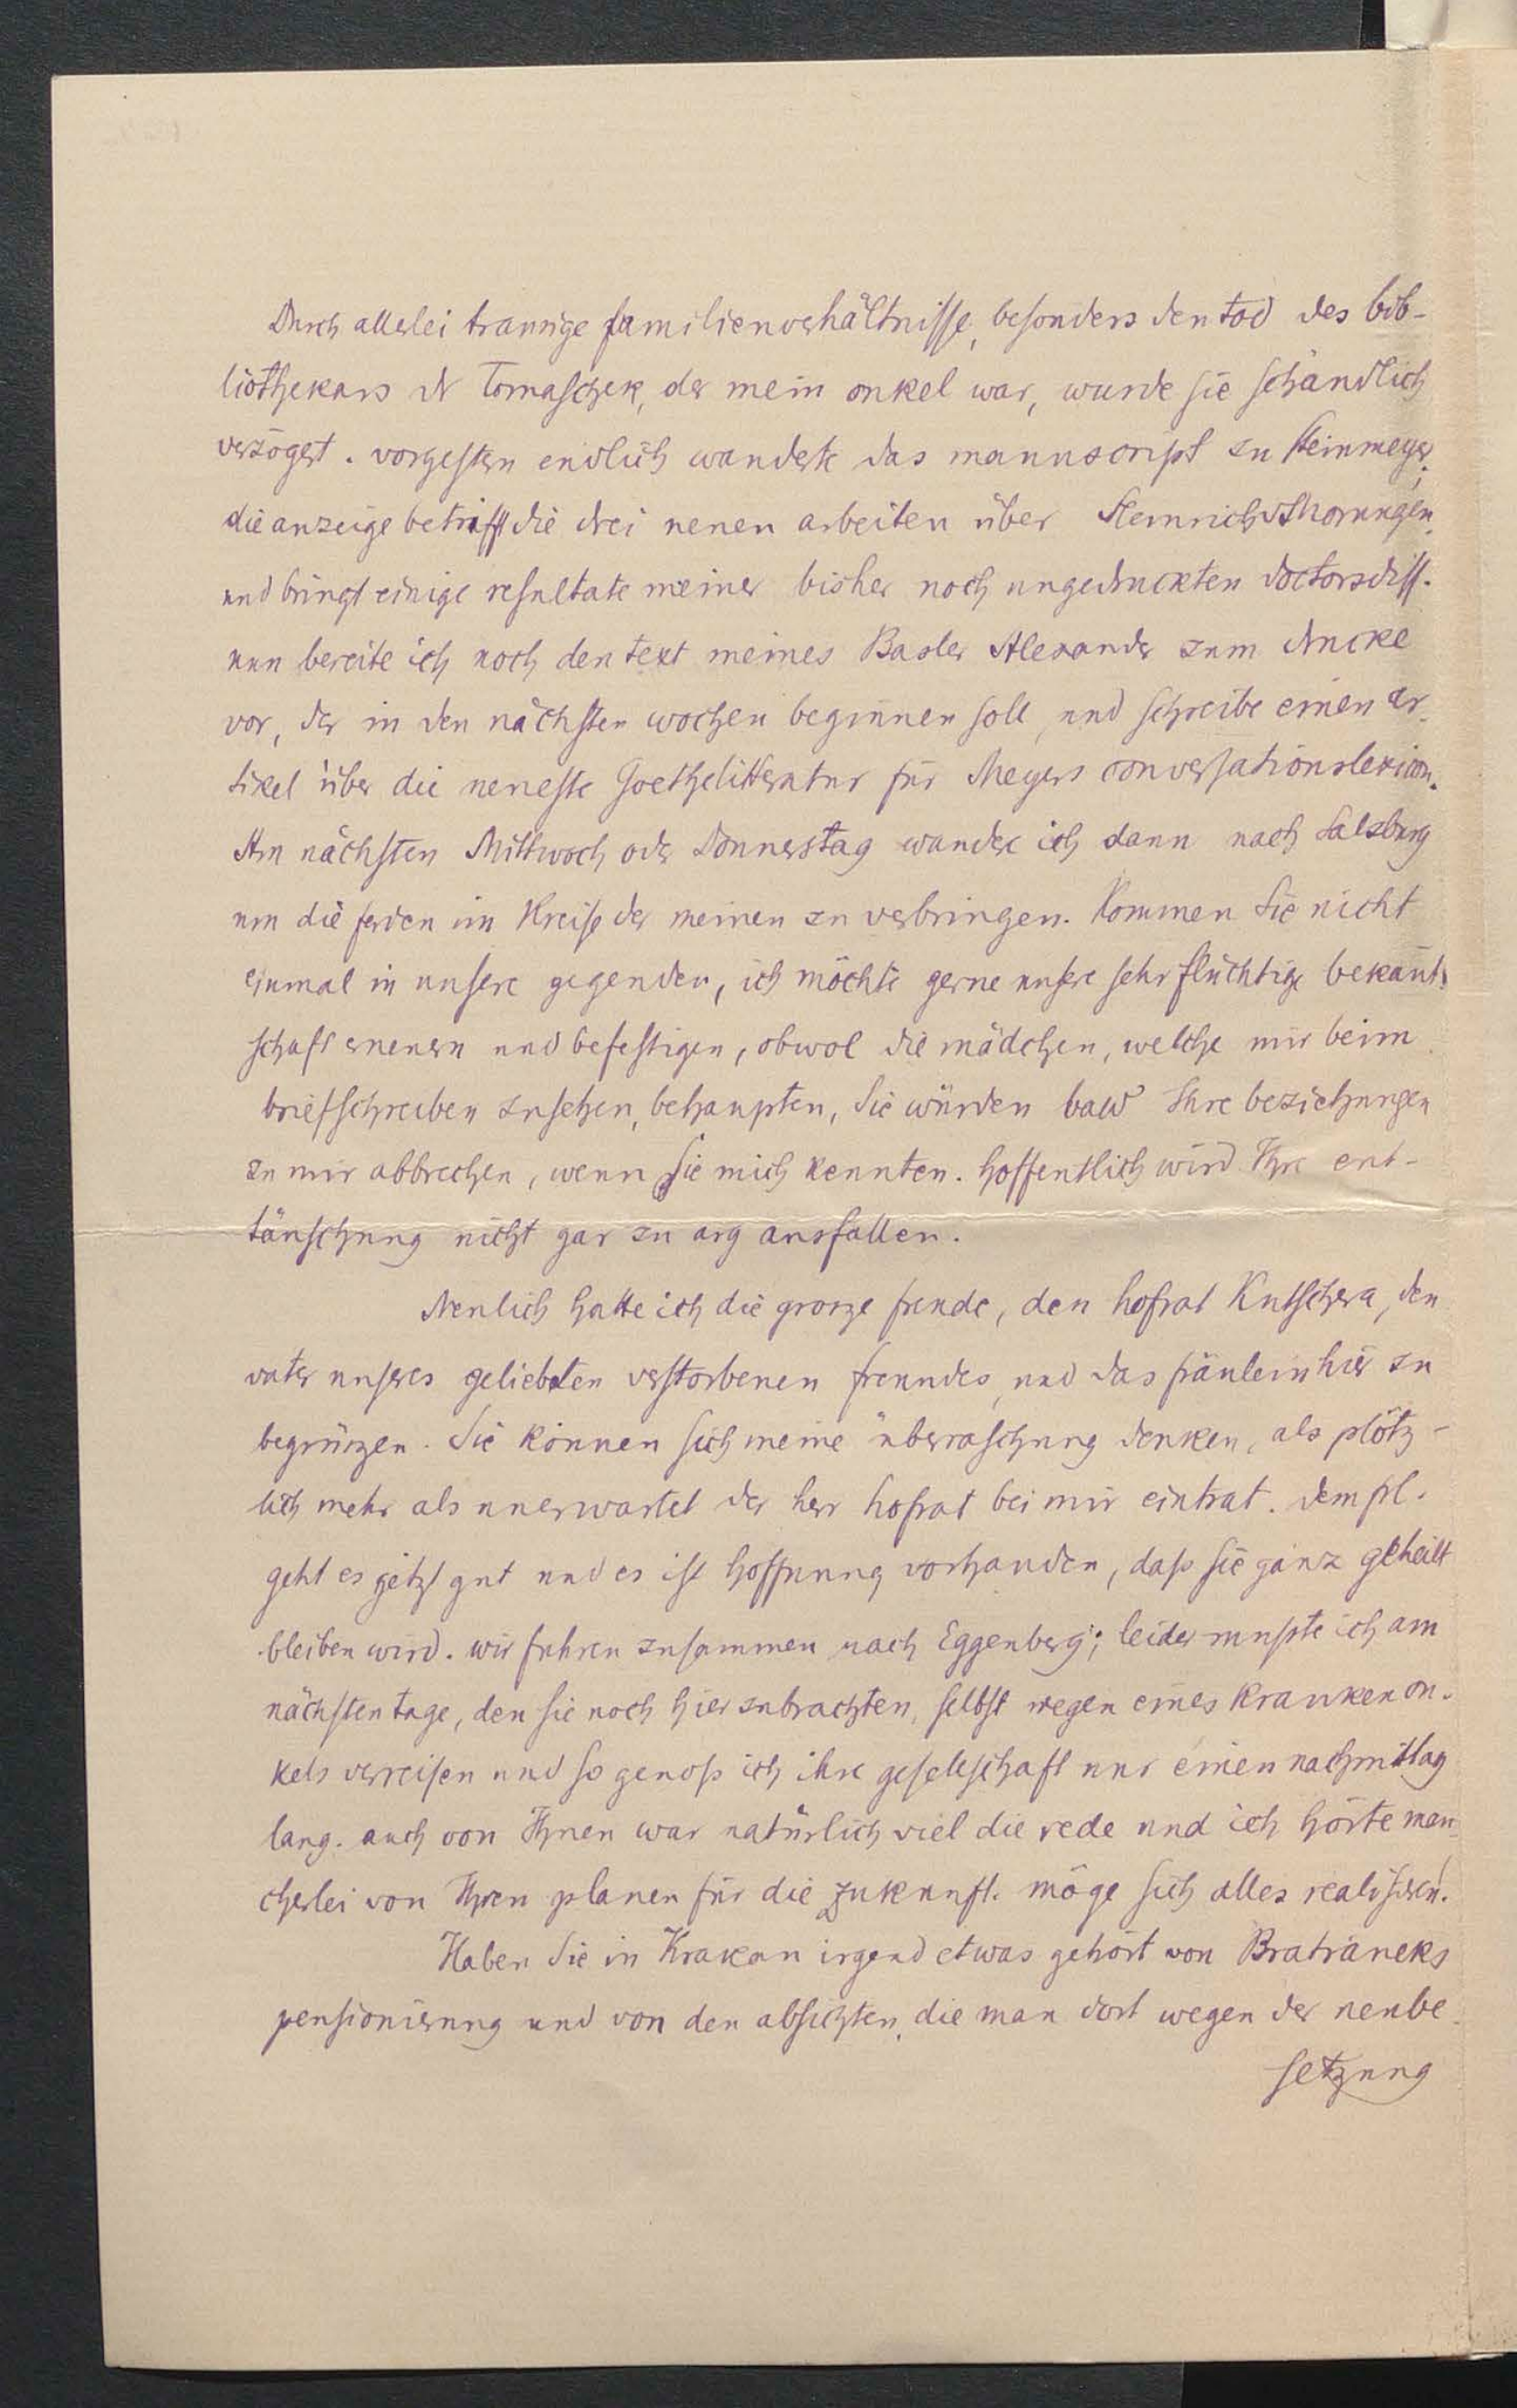 Durch allerlei traurige familienverhältnisse, besonders den tod des bib-
liothekars dr Tomaschek, der mein onkel war, wurde sie schändlich
verzögert. vorgestern endlich wanderte das manuscript zu Steinmeyer;
die anzeige betrifft die drei neuen arbeiten über Heinrich v Morungen
und bringt einige resultate meiner bisher noch ungedruckten doctorsdiss.
nun bereite ich noch den text meines Basler Alexander zum drucke
vor, der in den nächsten wochen beginnen soll, und schreibe einen ar-
tikel über die neueste Goethelitteratur für Meyers conversationslexicon.
Am nächsten Mittwoch oder Donnerstag wandere ich dann nach Salzburg
um die ferien im Kreise der meinen zu verbringen. Kommen Sie nicht
einmal in unsere gegenden, ich möchte gerne unsere sehr flüchtige bekannt-
schaft erneuern und befestigen, obwol die mädchen, welche mir beim
briefschreiben zusehen, behaupten, Sie würden bald Ihre beziehungen
zu mir abbrechen, wenn Sie mich kennten. hoffentlich wird Ihre ent-
täuschung nicht gar zu arg ausfallen.
Neulich hatte ich die grosze freude, den hofrat Kutschera, den
vater unseres geliebten verstorbenen freundes, und das fräulein hier zu
begrüszen. Sie können sich meine überraschung denken, als plötz-
lich mehr als unerwartet der herr hofrat bei mir eintrat. dem frl.
geht es jetzt gut und es ist hoffnung vorhanden, dass sie ganz geheilt
bleiben wird. wir fuhren zusammen nach Eggenberg; leider musste ich am
nächsten tage, den sie noch hier zubrachten, selbst wegen eines kranken on-
kels verreisen und so genoss ich ihre geselschaft nur einen nachmittag
lang. auch von Ihnen war natürlich viel die rede und ich hörte man-
cherlei von Ihren planen für die zukunft. möge sich alles realisieren!
Haben Sie in Krakau irgend etwas gehört von Bratraneks
pensionierung und von den absichten, die man dort wegen der neube-
setzung